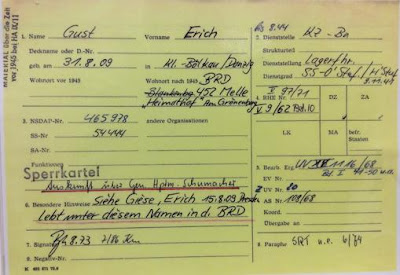 MATERIAL über die Zeit
vor 1945 bei HA IX/11
1. Name Gust Vorname Erich
Deckname oder D.-Nr.
geb. am 31.8.09 in Kl. Bölkau/Danzig
Wohnort vor 1945 Wohnort nach 1945 BRD
452 Melle
Heimathof Am Grönenberg
3. NSDAP-Nr. 465978 andere Organisationen
SS-Nr. 54444
SA-Nr.
Funktionen
Sperrkartei
Auskunft über Gen. Hptm. Schumacher
6. Besondere Hinweise Siehe Giese, Erich 15.8.09
lebt unter diesem Namen in d. BRD
7. Signatur 8.73 2/86
8. Negativ-Nr.
Ks 8.44
2. Dienststelle KZ-Bu
Strukturteil
Dienststellung Lagerfhr.
Dienstgrad SS-O'Stuf
4. RHE Nr. V 97/71 DZ ZA
V 9/62
LK MA bef. Staaten
5. Bearb. Erg. 11.16/68
EV Nr.
UV Nr. 20
AS Nr. 108/68
Koord.
Übergabe an
9. Paraphe